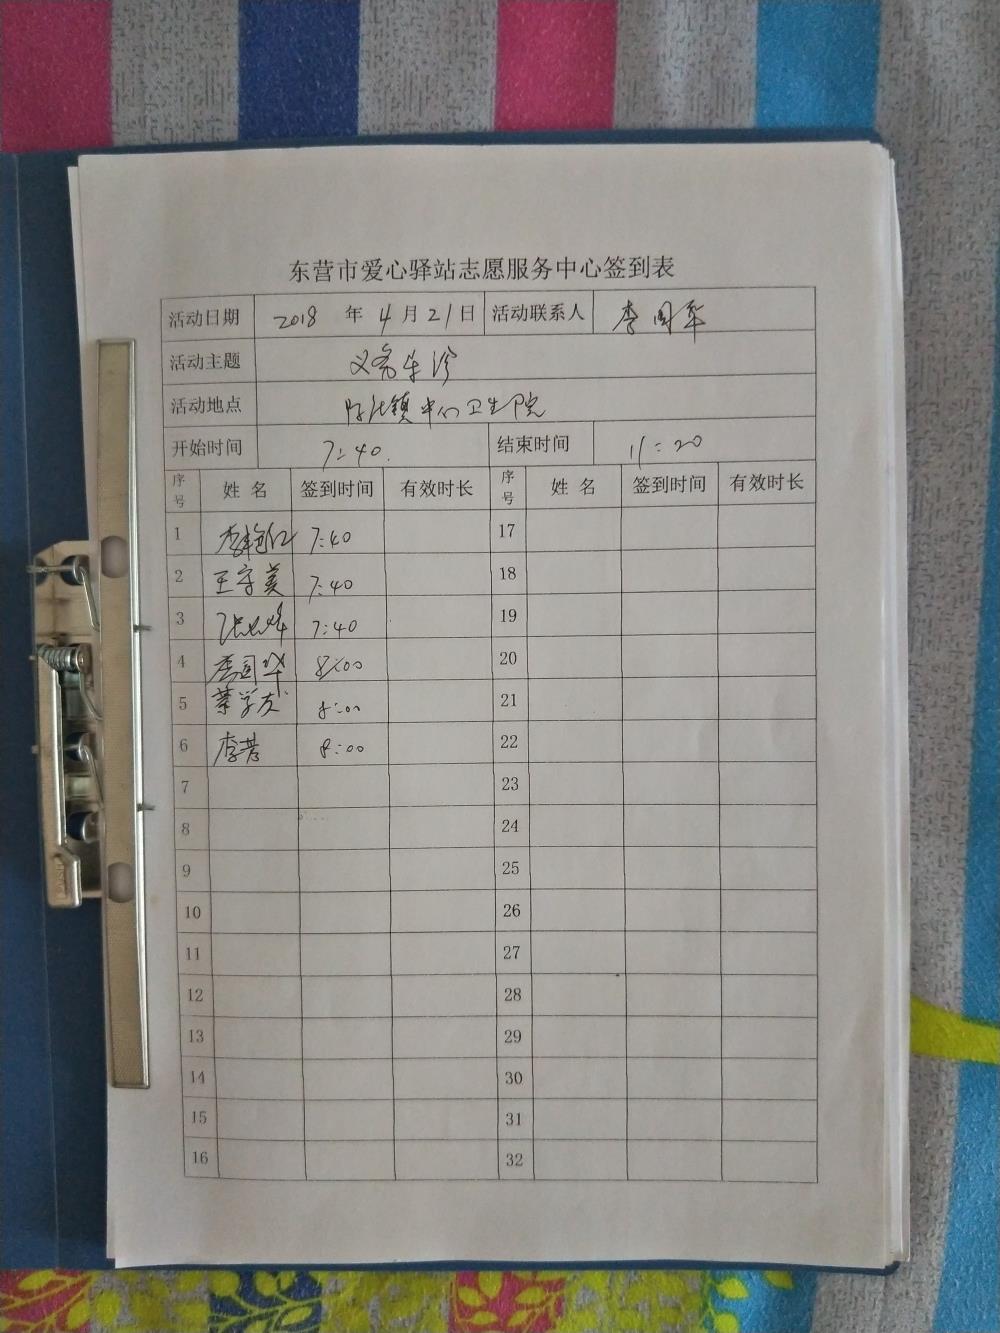 东营市爱心驿站志愿服务中心签到表
活动日期 2018 年 4 月 21 日 活动联系人 李国华
活动主题 义务
活动地点 镇中心卫生院
开始时间 7:40. 结束时间 11:20
序号 姓名 签到时间 有效时长 序号 姓名 签到时间 有效时长
1 李艳红 7:40 17
2 王守美 7:40 18
3 7:40 19
4 李国华 8:00 20
5 蔡学友 8:00 21
6 李营 8:00 22
7 23
8 24
9 25
10 26
11 27
12 28
13 29
14 30
15 31
16 32